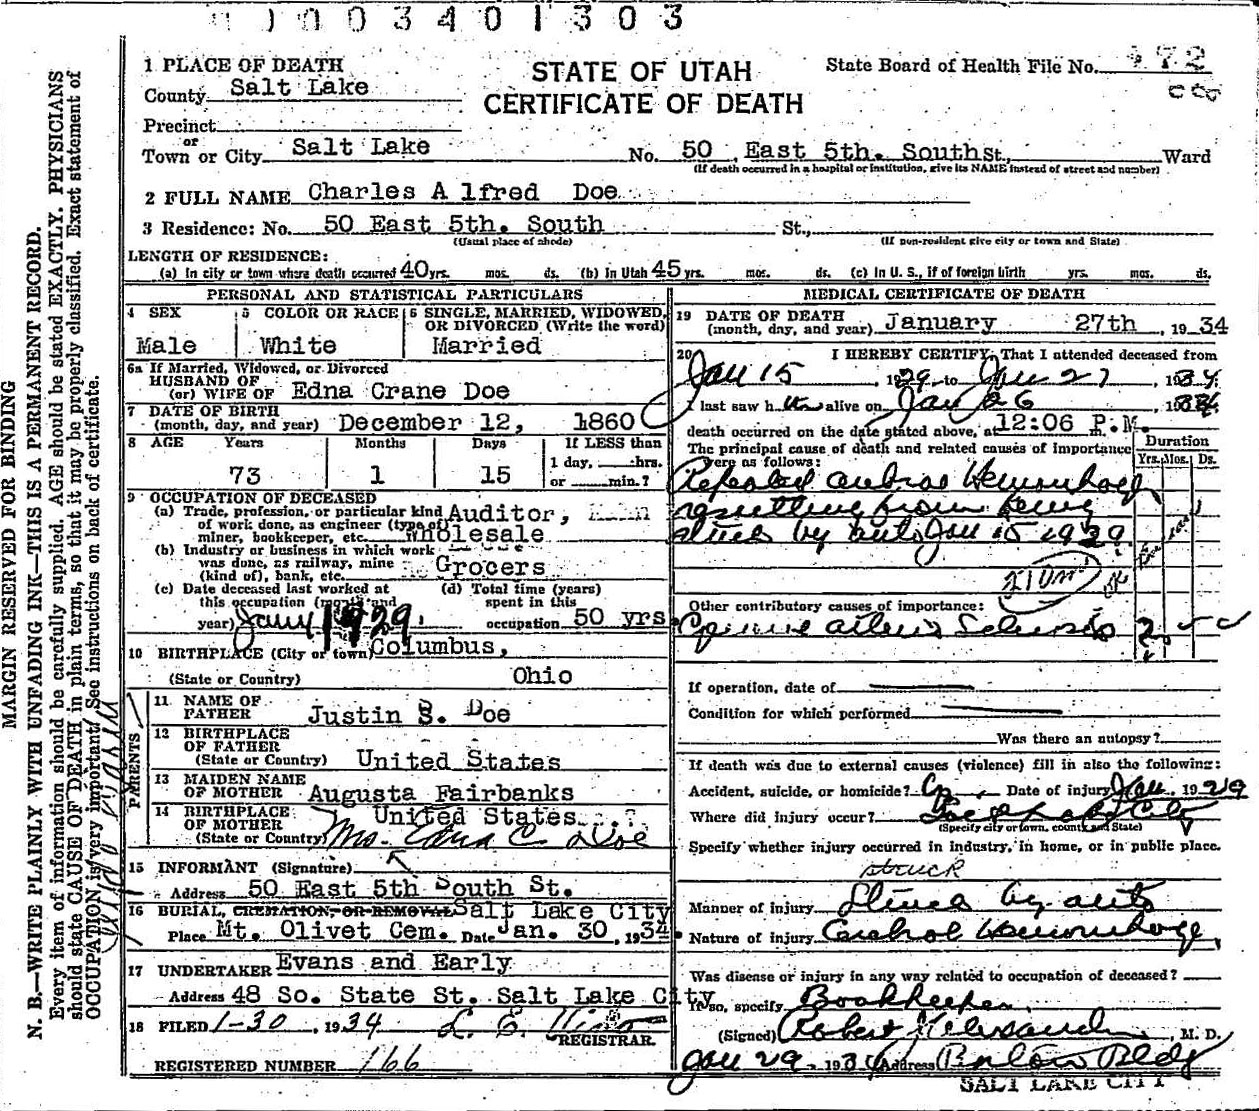 0003401303
1 PLACE OF DEATH
STATE OF UTAH
CERTIFICATE OF DEATH
State Board of Health File No. 472
County Salt Lake
Precinct
or
Town or City Salt Lake No. 50 East 5th. South St., Ward
(If death occurred in a hospital or institution, give its NAME instead of street and number)
2 FULL NAME Charles A lfred Doe
3 Residence: No. 50 East 5th. South St.,
(Usual place of abode) (If non-resident give city or town and State)
LENGTH OF RESIDENCE:
(a) In city or town where death occurred 40 yrs. mos. ds. (b) In Utah 45 yrs. mos. ds. (c) In U. S., if of foreign birth yrs. mos. ds.
PERSONAL AND STATISTICAL PARTICULARS
4 SEX 5 COLOR OR RACE 6 SINGLE, MARRIED, WIDOWED, OR DIVORCED (Write the word)
Male White Married
6a If Married, Widowed, or Divorced
HUSBAND OF
(or) WIFE OF Edna Crane Doe
7 DATE OF BIRTH
(month, day, and year) December 12, 1860
8 AGE Years Months Days If LESS than
1 day, hrs.
73 1 15 or min.?
9 OCCUPATION OF DECEASED
(a) Trade, profession, or particular kind Auditor,
of work done, as engineer (type of)
miner, bookkeeper, etc. wholesale
(b) Industry or business in which work
was done, as railway, mine Grocers
(kind of), bank, etc.
(c) Date deceased last worked at (d) Total time (years)
this occupation (month and spent in this
year) Jany 1929 occupation 50 yrs.
10 BIRTHPLACE (City or town) Columbus,
(State or Country) Ohio
PARENTS
11 NAME OF
FATHER Justin S. Doe
12 BIRTHPLACE
OF FATHER
(State or Country) United States
13 MAIDEN NAME
OF MOTHER Augusta Fairbanks
14 BIRTHPLACE United States ?
OF MOTHER
(State or Country) Mrs. Edna C. Doe
15 INFORMANT (Signature)
Address 50 East 5th South St.
16 BURIAL, CREMATION, OR REMOVAL Salt Lake City
Place Mt. Olivet Cem. Date Jan. 30, 1934.
17 UNDERTAKER Evans and Early
Address 48 So. State St. Salt Lake City
18 FILED 1-30, 1934 L. E.
REGISTRAR.
REGISTERED NUMBER 166
MEDICAL CERTIFICATE OF DEATH
19 DATE OF DEATH
(month, day, and year) January 27th, 1934
20 I HEREBY CERTIFY, That I attended deceased from
Jan 15, 1929, to Jan 27, 1934.
I last saw him alive on Jan 26 1934
death occurred on the date stated above, at 12:06 P.M.
The principal cause of death and related causes of importance
were as follows:
Duration
Yrs. Mos. Ds.
Repeated cerebral Hemorrhage
resulting from being
struck by auto Jan 15 1929
210m
Other contributory causes of importance:
Sclerosis 2
If operation, date of
Condition for which performed
Was there an autopsy?
If death was due to external causes (violence) fill in also the following:
Accident, suicide, or homicide? Date of injury Jan 1929
Where did injury occur? Salt Lake City
(Specify city or town, county and State)
Specify whether injury occurred in industry, in home, or in public place.
struck
Manner of injury Struck by auto
Nature of injury Cerebral Hemorrhage
Was disease or injury in any way related to occupation of deceased?
If so, specify Bookkeeper
(Signed) Robert, M. D.
Jan 29, 1934 Address Boston Bldg
SALT LAKE CITY
MARGIN RESERVED FOR BINDING
N. B.—WRITE PLAINLY WITH UNFADING INK—THIS IS A PERMANENT RECORD.
Every item of information should be carefully supplied. AGE should be stated EXACTLY. PHYSICIANS
should state CAUSE OF DEATH in plain terms, so that it may be properly classified. Exact statement of
OCCUPATION is very important. See instructions on back of certificate.